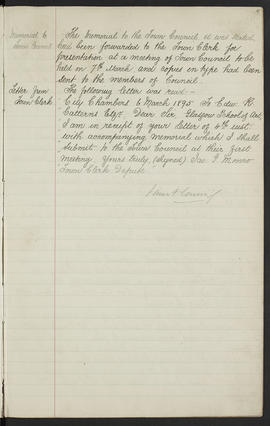 Memorial to
Town Council
The Memorial to the Town Council it was stated
had been forwarded to the Town Clerk for
presentation at a meeting of Town Council to be
held on 7th March and copies in type had been
sent to the members of Council.
Letter from
Town Clerk
The following letter was read:-
"City Chambers 6 March 1895 To Edw. R.
Catterns Esqr Dear Sir Glasgow School of Art
I am in receipt of your letter of 4th inst.
with accompanying Memorial which I shall
submit to the Town Council at their first
meeting Yours truly, (signed) Jas. F. Monro
Town Clerk Depute